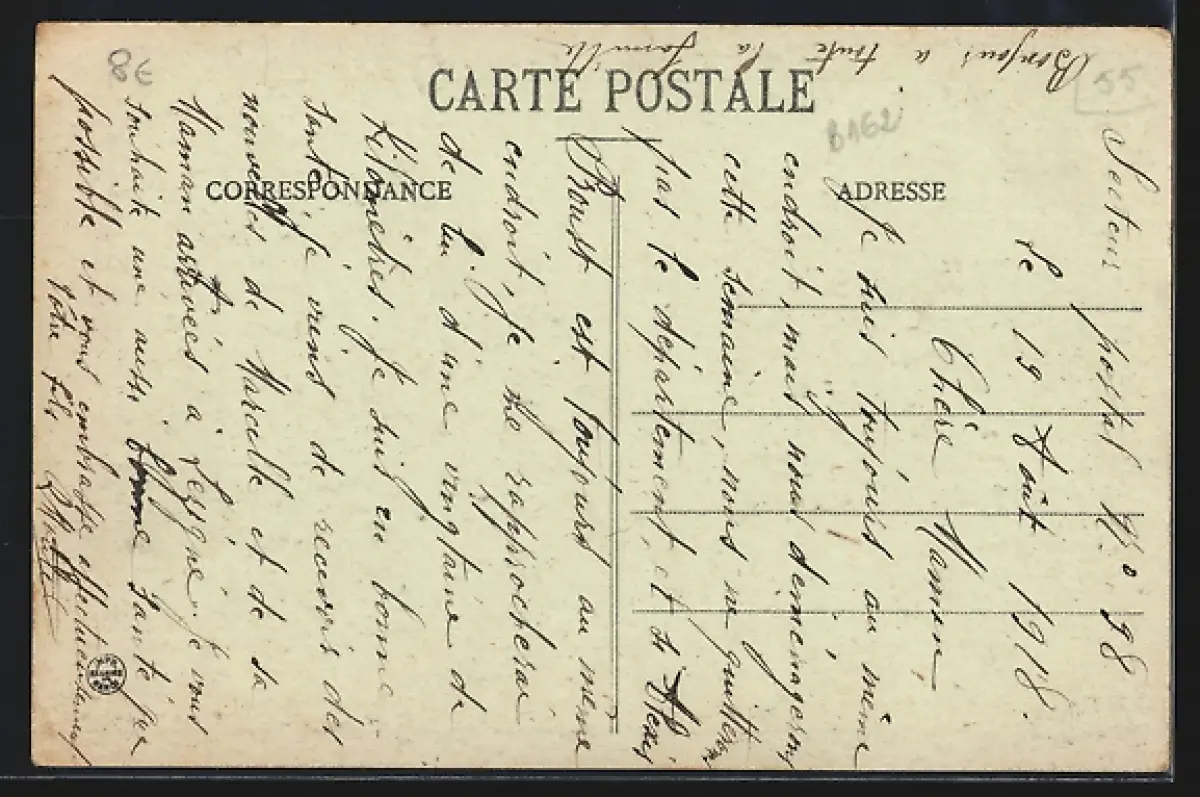 CARTE POSTALE
CORRESPONDANCE
ADRESSE
8€
55
B162
Secteur postal N.º 98
le 19 Août 1918.
Chère Maman,
Je suis toujours au même
endroit, mais nous déménagerons
cette semaine, nous ne quitterons
pas le département, et
Proust est toujours au même
endroit, je me rapprocherai
de lui d'une vingtaine de
Kilomètres. Je suis en bonne
santé, je viens de recevoir des
nouvelles de Marcelle et de sa
Maman arrivées à Je vous
souhaite une aussi bonne santé que
possible et vous embrasse affectueusement
Votre fils
Bonjour a toute la famille